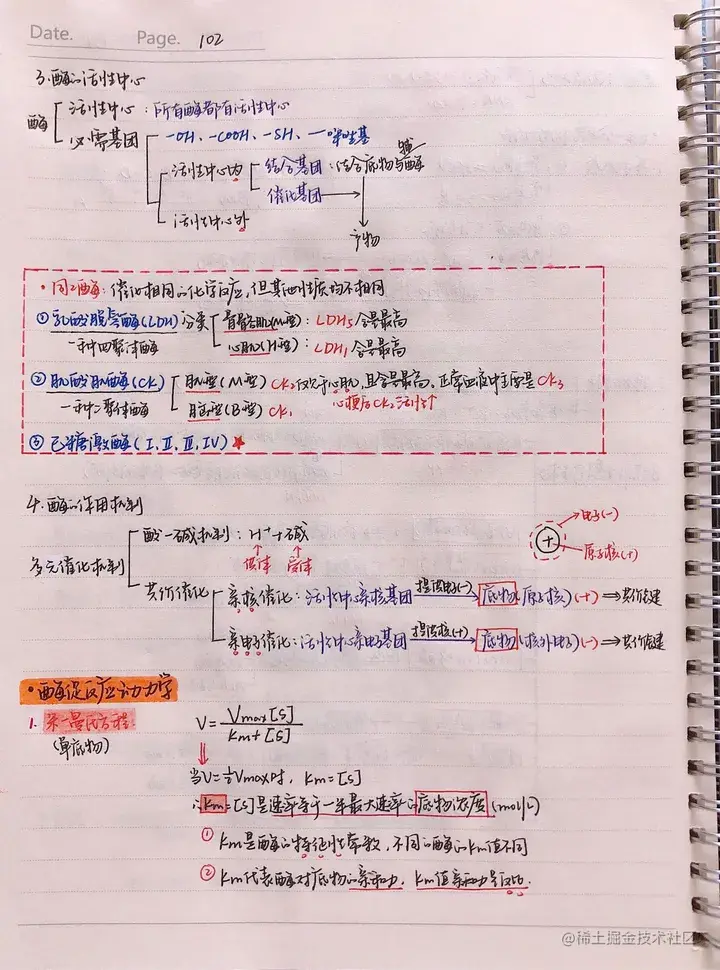 Date. Page. 102
3.酶的活性中心
酶
活性中心：所有酶都有活性中心
必需基团
-OH、-COOH、-SH、-咪唑基
活性中心内
结合基团：结合底物与辅酶
催化基团
产物
活性中心外
·同工酶：催化相同的化学反应，但其他性质均不相同
①乳酸脱氢酶(LDH)分类
一种四聚体酶
骨骼肌(M型)：LDH5含量最高
心肌(H型)：LDH1含量最高
②肌酸肌酶(CK)
一种二聚体酶
肌型(M型) CK2仅次于心肌，且含量最高、正常血液中主要是CK3
心梗后CK2活性↑
脑型(B型) CK1
③己糖激酶(I、II、III、IV)★
4.酶的作用机制
多元催化机制
酸-碱机制：H⁺+碱
供体 受体
电子(-)
+
原子核(+)
共价催化
亲核催化：活性中心亲核基团 提供电子(-) 底物(原子核)(+) ⇒共价键
亲电子催化：活性中心亲电子基团 提供核(+) 底物(核外电子)(-) ⇒共价键
·酶促反应动力学
1.米-曼氏方程
(单底物)
V=Vmax[S]/Km+[S]
当V=½Vmax时，Km=[S]
∴Km=[S]是速率等于一半最大速率的底物浓度(mol/L)
①Km是酶的特征性常数，不同的酶的Km值不同
②Km代表酶对底物的亲和力，Km值亲和力呈反比.
@稀土掘金技术社区